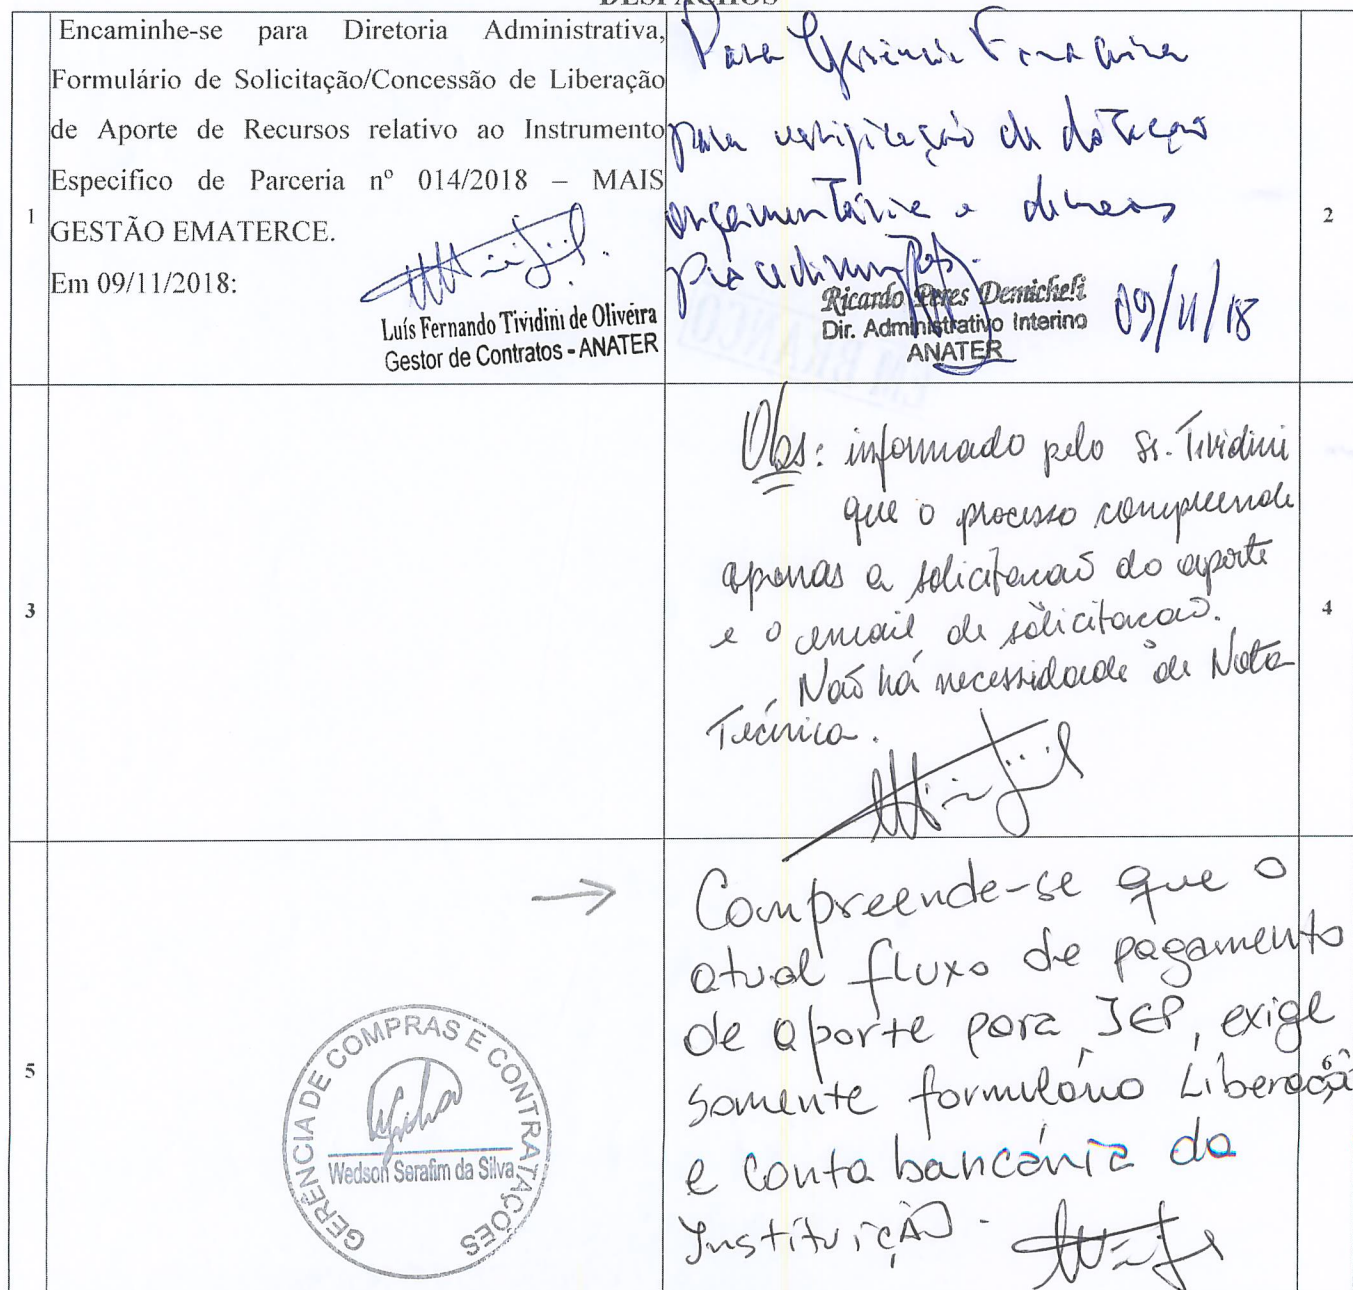 DESPACHOS
1
Encaminhe-se para Diretoria Administrativa,
Formulário de Solicitação/Concessão de Liberação
de Aporte de Recursos relativo ao Instrumento
Especifico de Parceria nº 014/2018 – MAIS
GESTÃO EMATERCE.
Em 09/11/2018:
Luís Fernando Tividini de Oliveira
Gestor de Contratos - ANATER
Para Gerência Financeira
para verificação de dotação
orçamentária e demais
procedimentos.
Ricardo Peres Demicheli
Dir. Administrativo Interino
ANATER
09/11/18
2
EM BRANCO
3
Obs: informado pelo Sr. Tividini
que o processo compreende
apenas a solicitacaõ do aporte
e o email de solicitacaõ.
Naõ há necessidade de Nota
Técnica.
4
5
GERÊNCIA DE COMPRAS E CONTRATAÇÕES
Wedson Serafim da Silva
Compreende-se que o
atual fluxo de pagamento
de aporte para IEP, exige
somente formulário Liberação
e conta bancária da
Instituição.
6